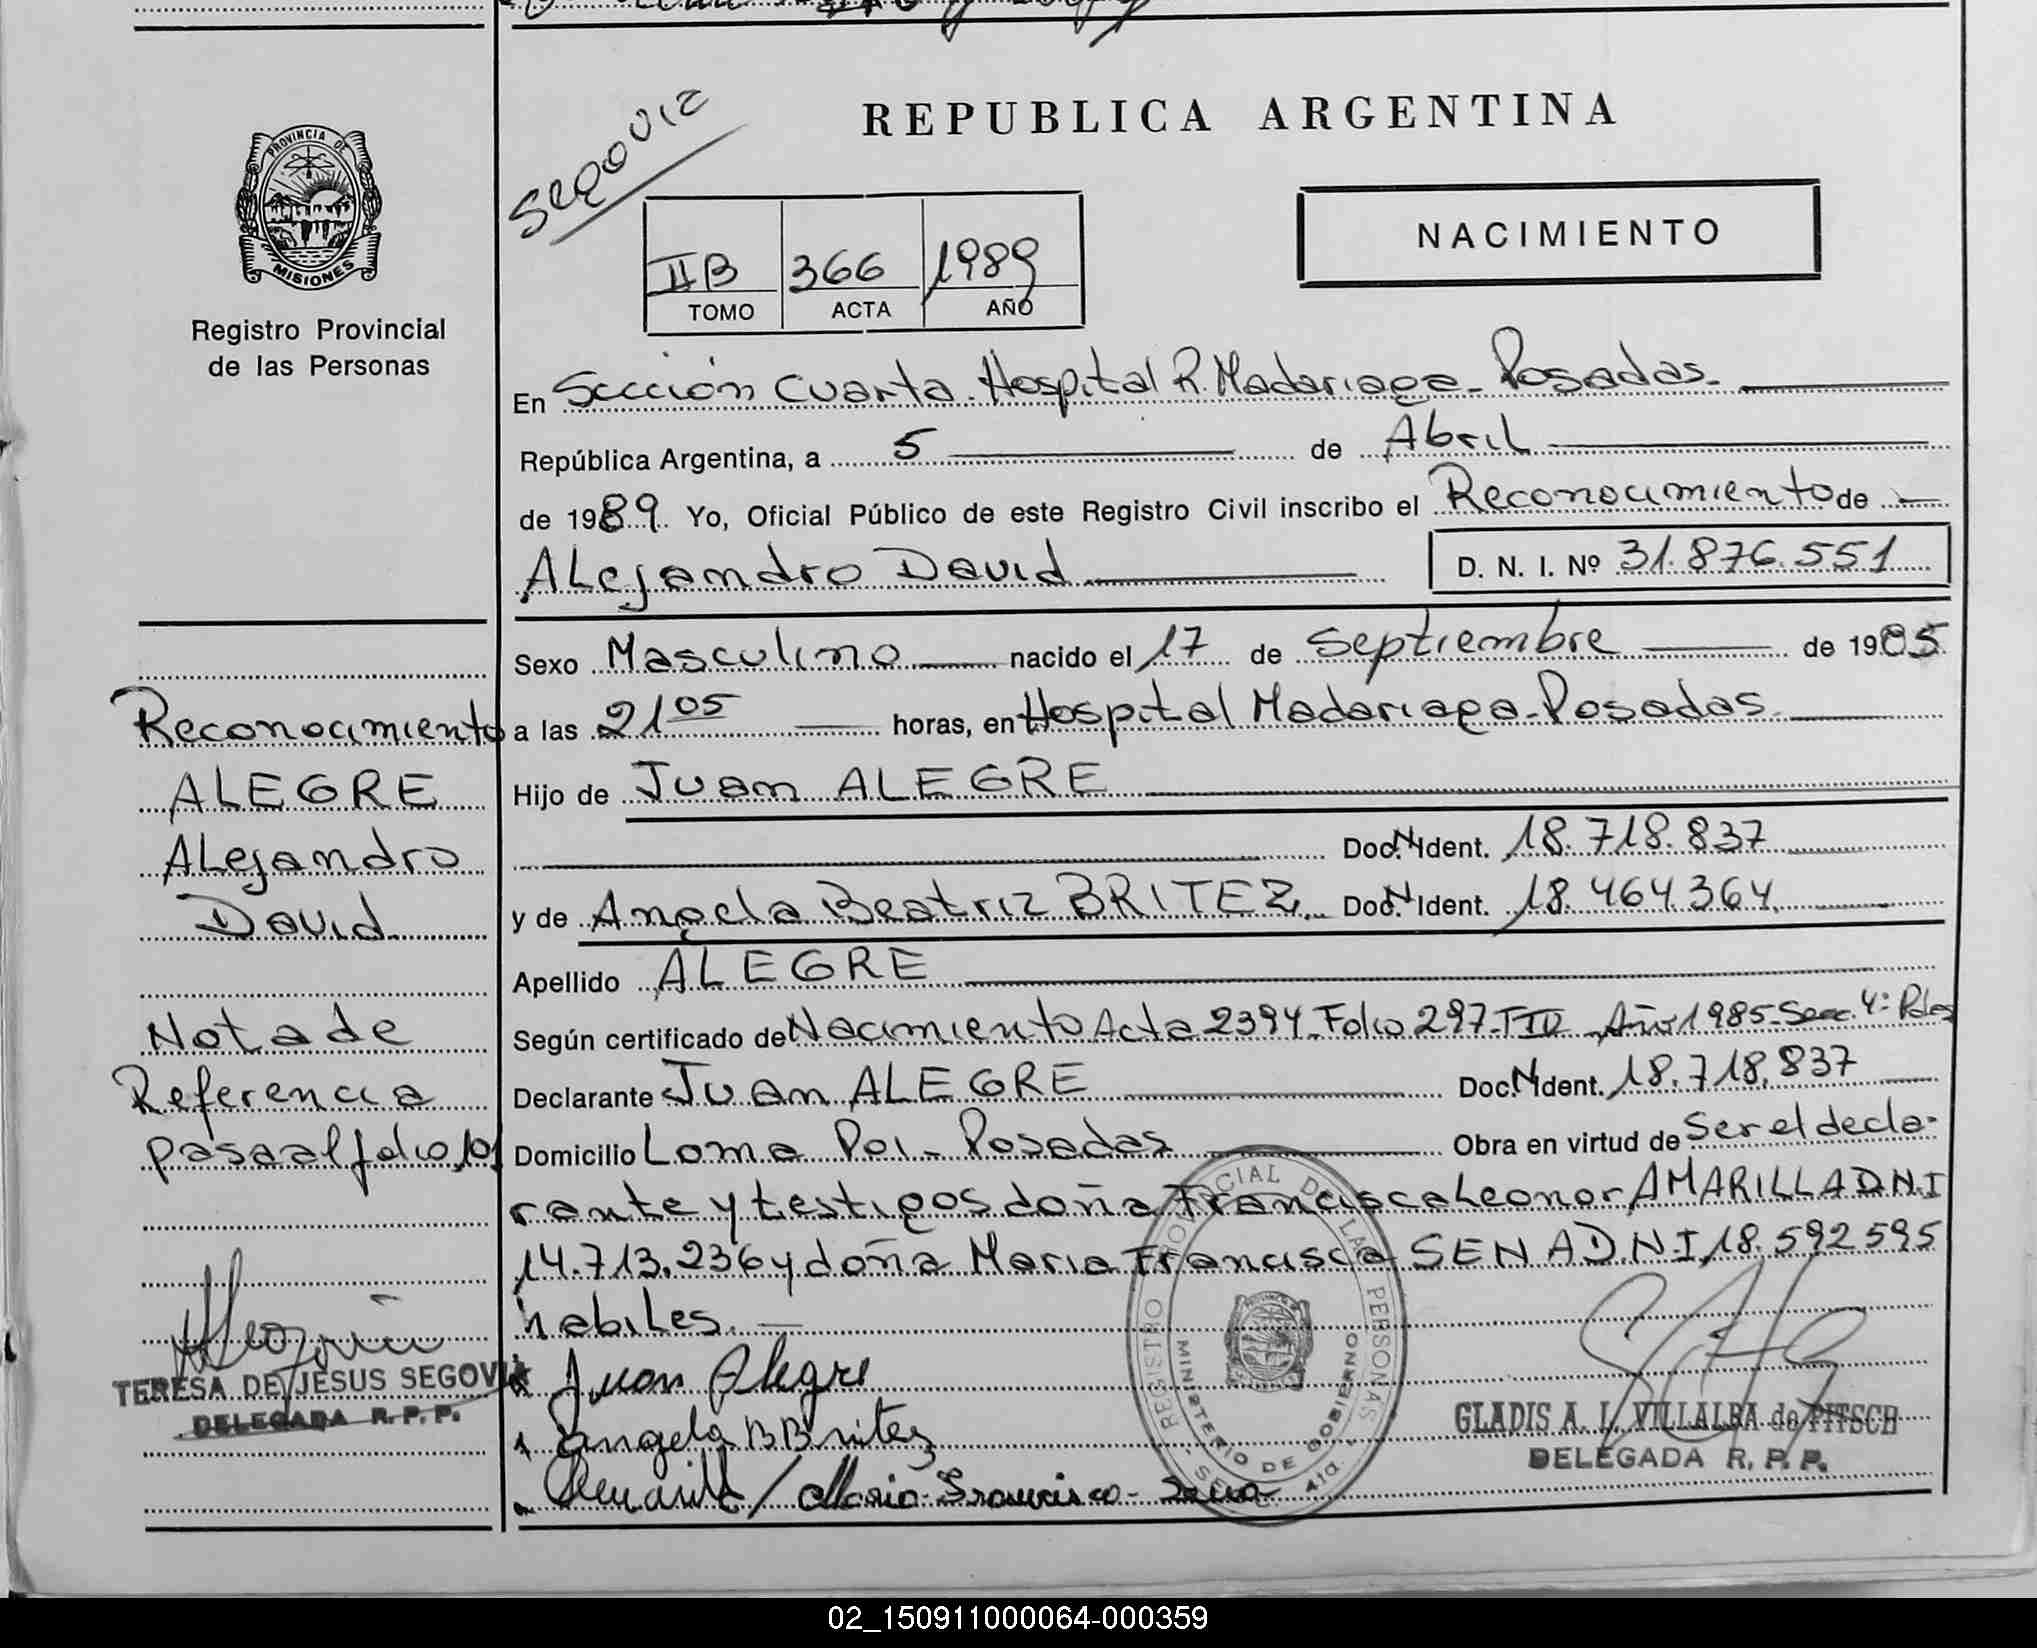 REPUBLICA ARGENTINA
PROVINCIA DE
MISIONES
Registro Provincial
de las Personas
Segovia
NACIMIENTO
IIB 366 1989
TOMO ACTA AÑO
En Sección Cuarta. Hospital R. Madariaga - Posadas.
República Argentina, a 5 de Abril
de 1989. Yo, Oficial Público de este Registro Civil inscribo el Reconocimiento de
Alejandro David D. N. I. Nº 31.876.551
Sexo Masculino nacido el 17 de Septiembre de 1985
a las 21 05 horas, en Hospital Madariaga - Posadas.
Hijo de Juan ALEGRE
Doc. N Ident. 18.718.837
y de Angela Beatriz BRITEZ Doc. N Ident. 18.464.364
Apellido ALEGRE
Según certificado de Nacimiento Acta 2394 Folio 297 - Año 1985 - Secc. 4ª
Declarante Juan ALEGRE Doc. N Ident. 18.718.837
Domicilio Loma Poi - Posadas Obra en virtud de ser el decla-
rante y testigos doña Francisca Leonor AMARILLA D.N.I
14.713.236 y doña Maria Francisca SENA D.N.I. 18.592595
habiles.
Juan Alegre
Angela B Britez
Amarilla / Maria Francisca Sena
Reconocimiento
ALEGRE
Alejandro
David
Nota de
Referencia
pasa al folio 101
TERESA DE JESUS SEGOVIA
DELEGADA R. P. P.
REGISTRO PROVINCIAL DE LAS PERSONAS
MINISTERIO DE GOBIERNO
GLADIS A. L. VILLALBA de PITSCH
DELEGADA R. P. P.
02_150911000064-000359